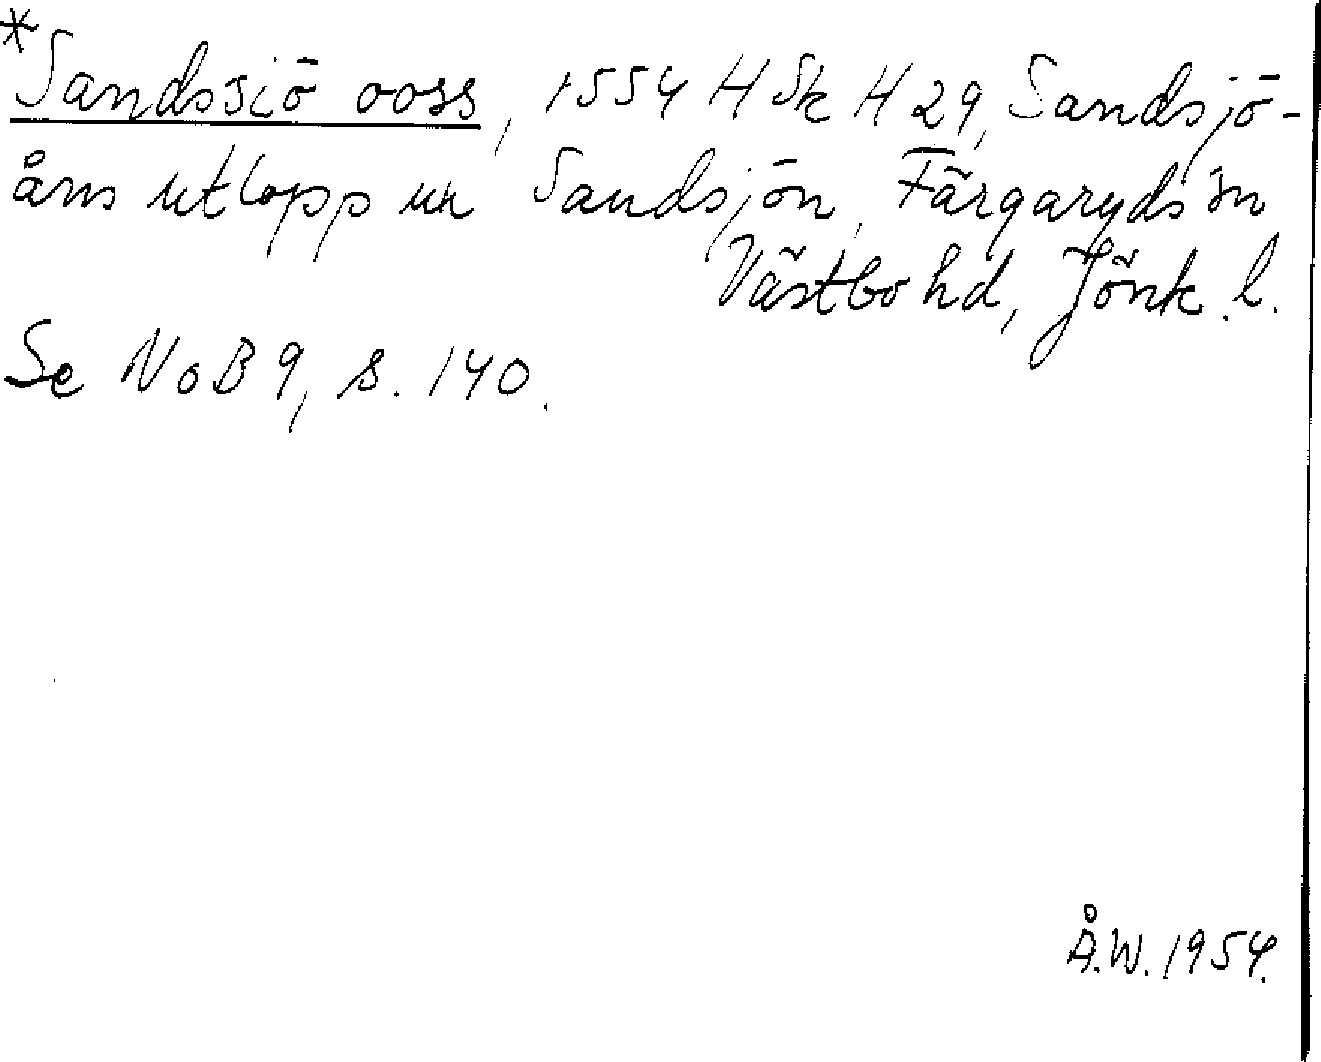 *Sandssiö ooss, 1554 H Sk H 29, Sandsjö-
åns utlopp ur Sandsjön, Färgaryds sn
Västbo hd, Jönk. l.
Se NoB 9, s. 140.
Å.W. 1954.